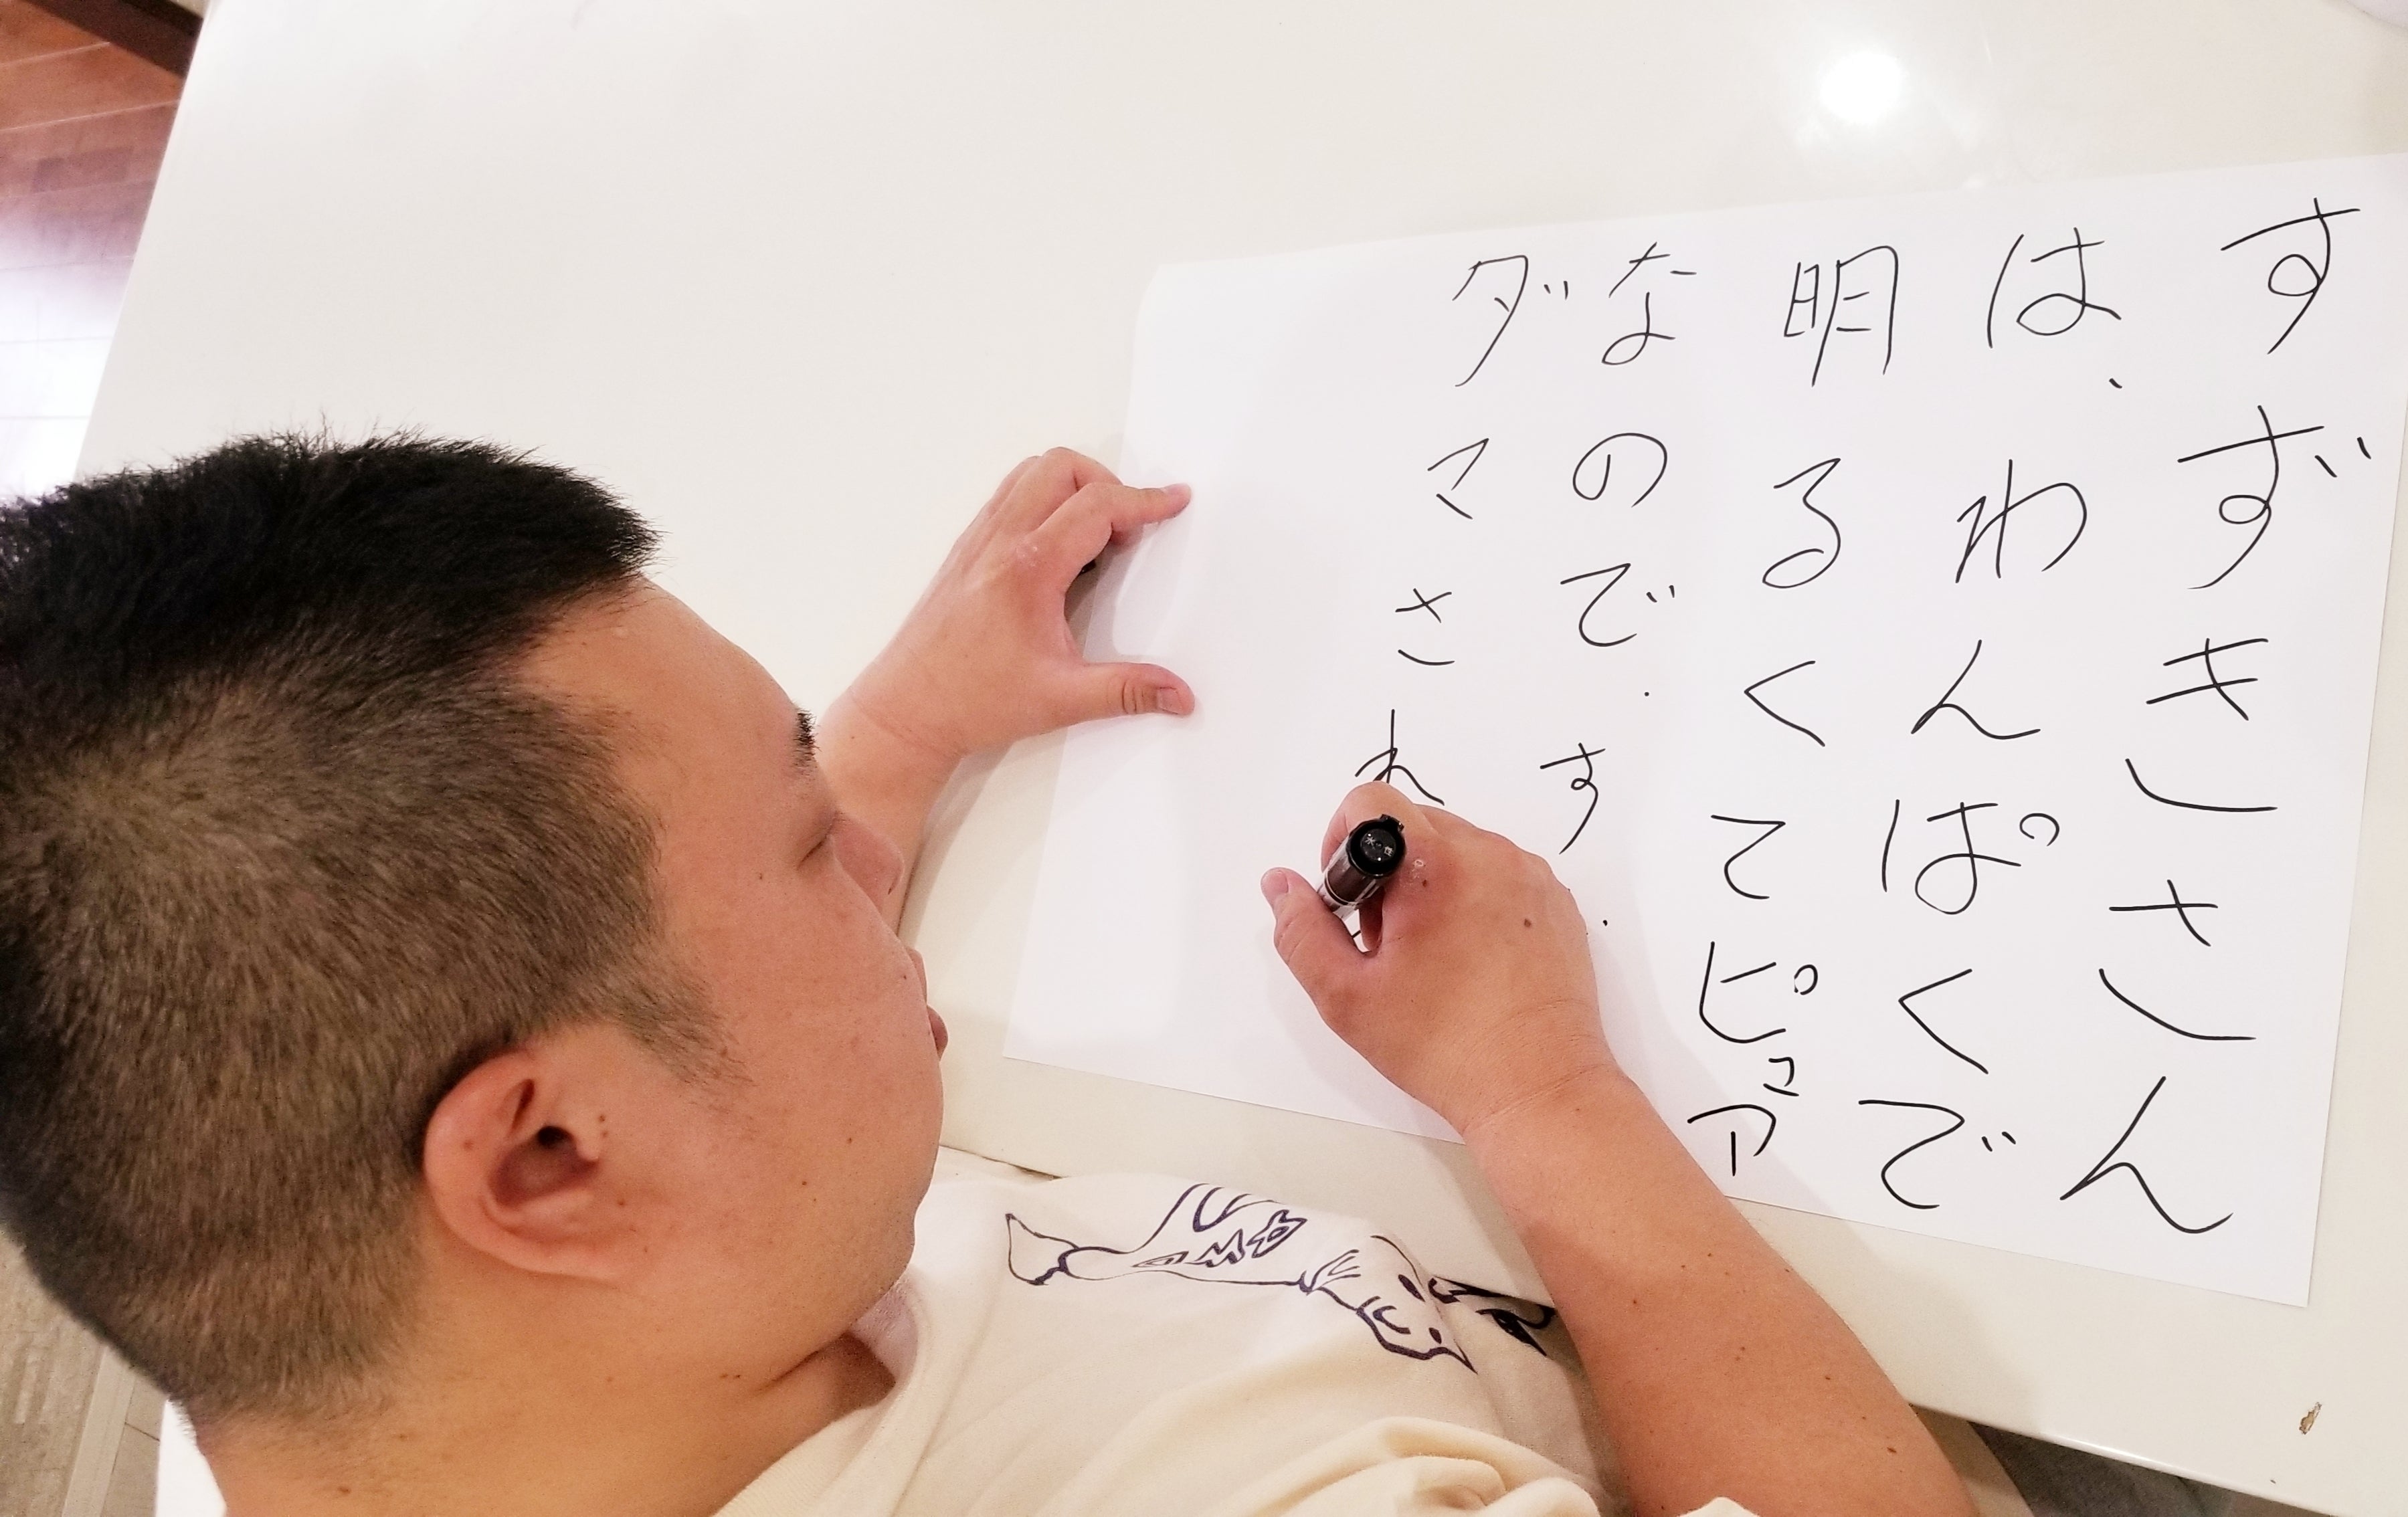 すずきさん
は、わんぱくで
明るくてピュア
なのです
ダマされ